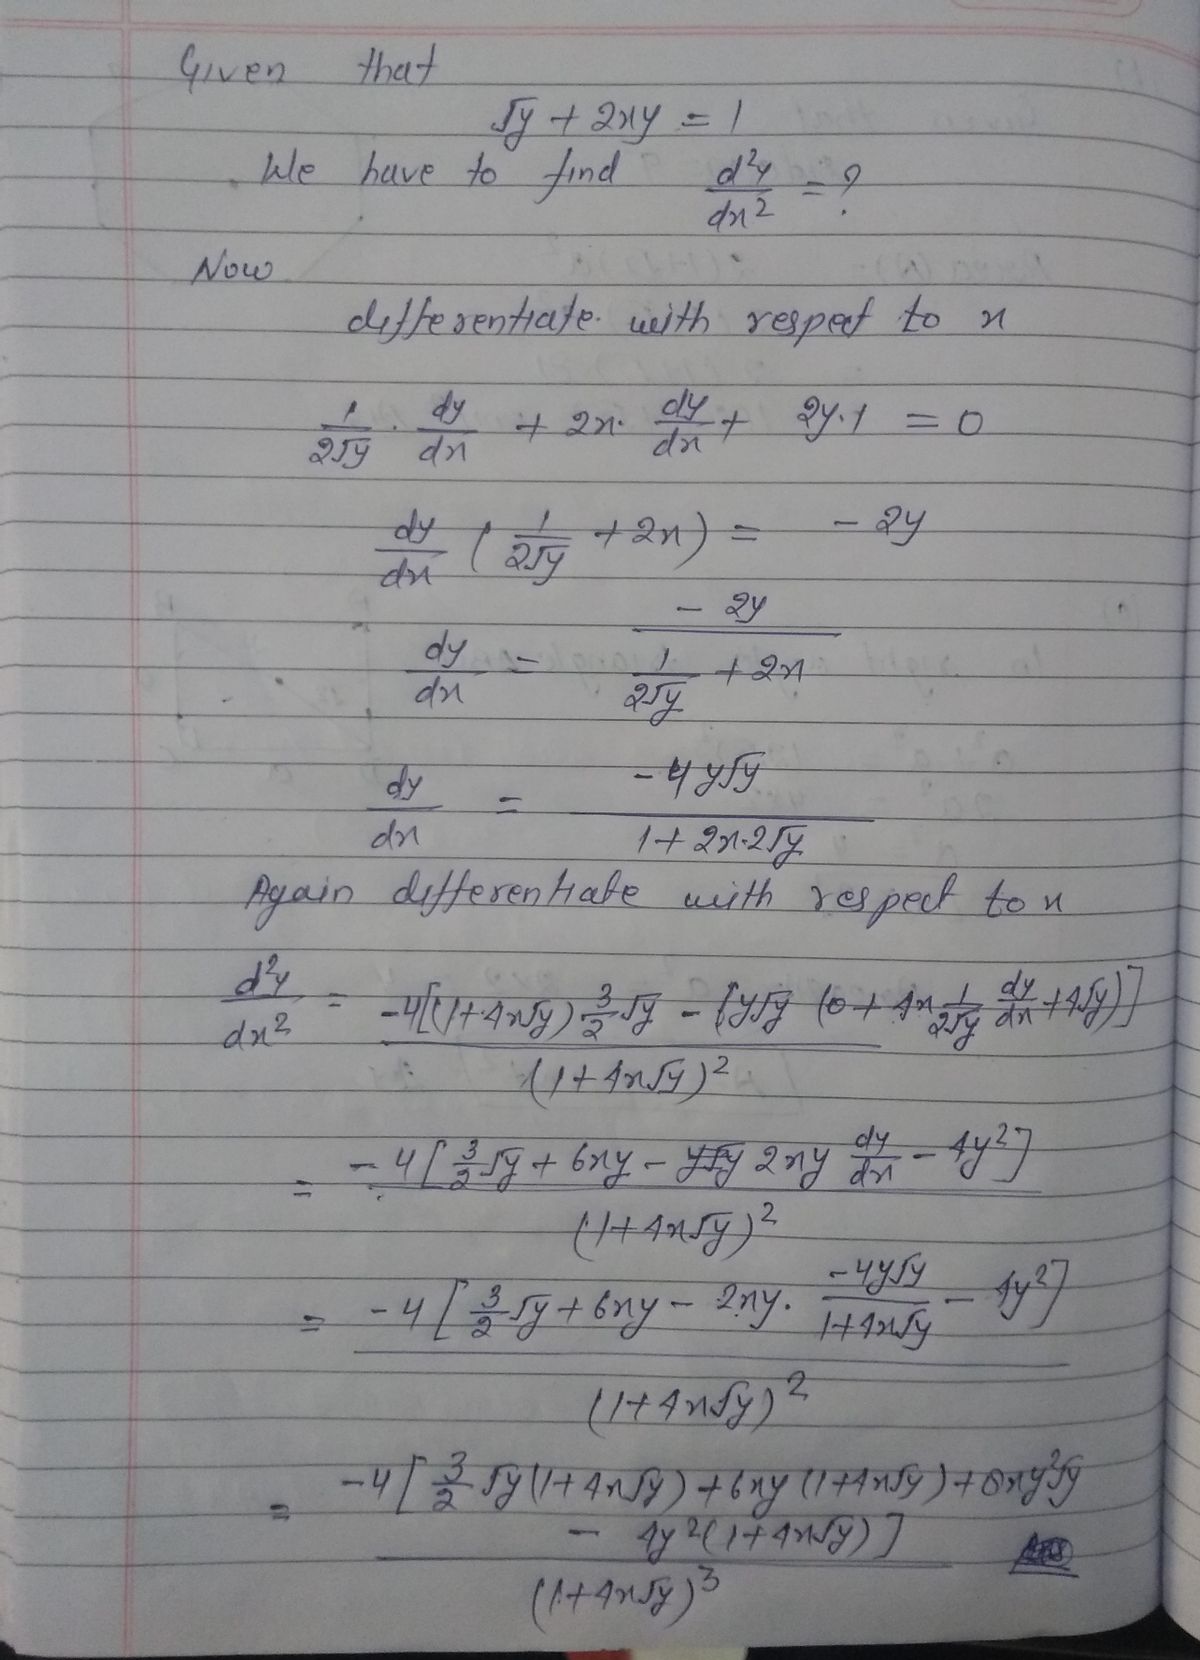 Given that
√y + 2xy = 1
We have to find d²y/dx² = ?
Now
differentiate with respect to x
1/2√y · dy/dx + 2x · dy/dx + 2y·1 = 0
dy/dx (1/2√y + 2x) = - 2y
dy/dx = - 2y / (1/2√y + 2x)
dy/dx = -4y√y / (1+2x·2√y)
Again differentiate with respect to x
d²y/dx² = -4[(1+4x√y) 3/2 √y - [y√y (0 + 4x 1/2√y dy/dx + 4√y)] / (1+4x√y)²
= -4[3/2 √y + 6xy - 2xy dy/dx - 4y²] / (1+4x√y)²
= -4[3/2 √y + 6xy - 2xy · -4y√y / (1+4x√y) - 4y²] / (1+4x√y)²
= -4[3/2 √y(1+4x√y) + 6xy(1+4x√y) + 8xy²√y - 4y²(1+4x√y)] / (1+4x√y)³